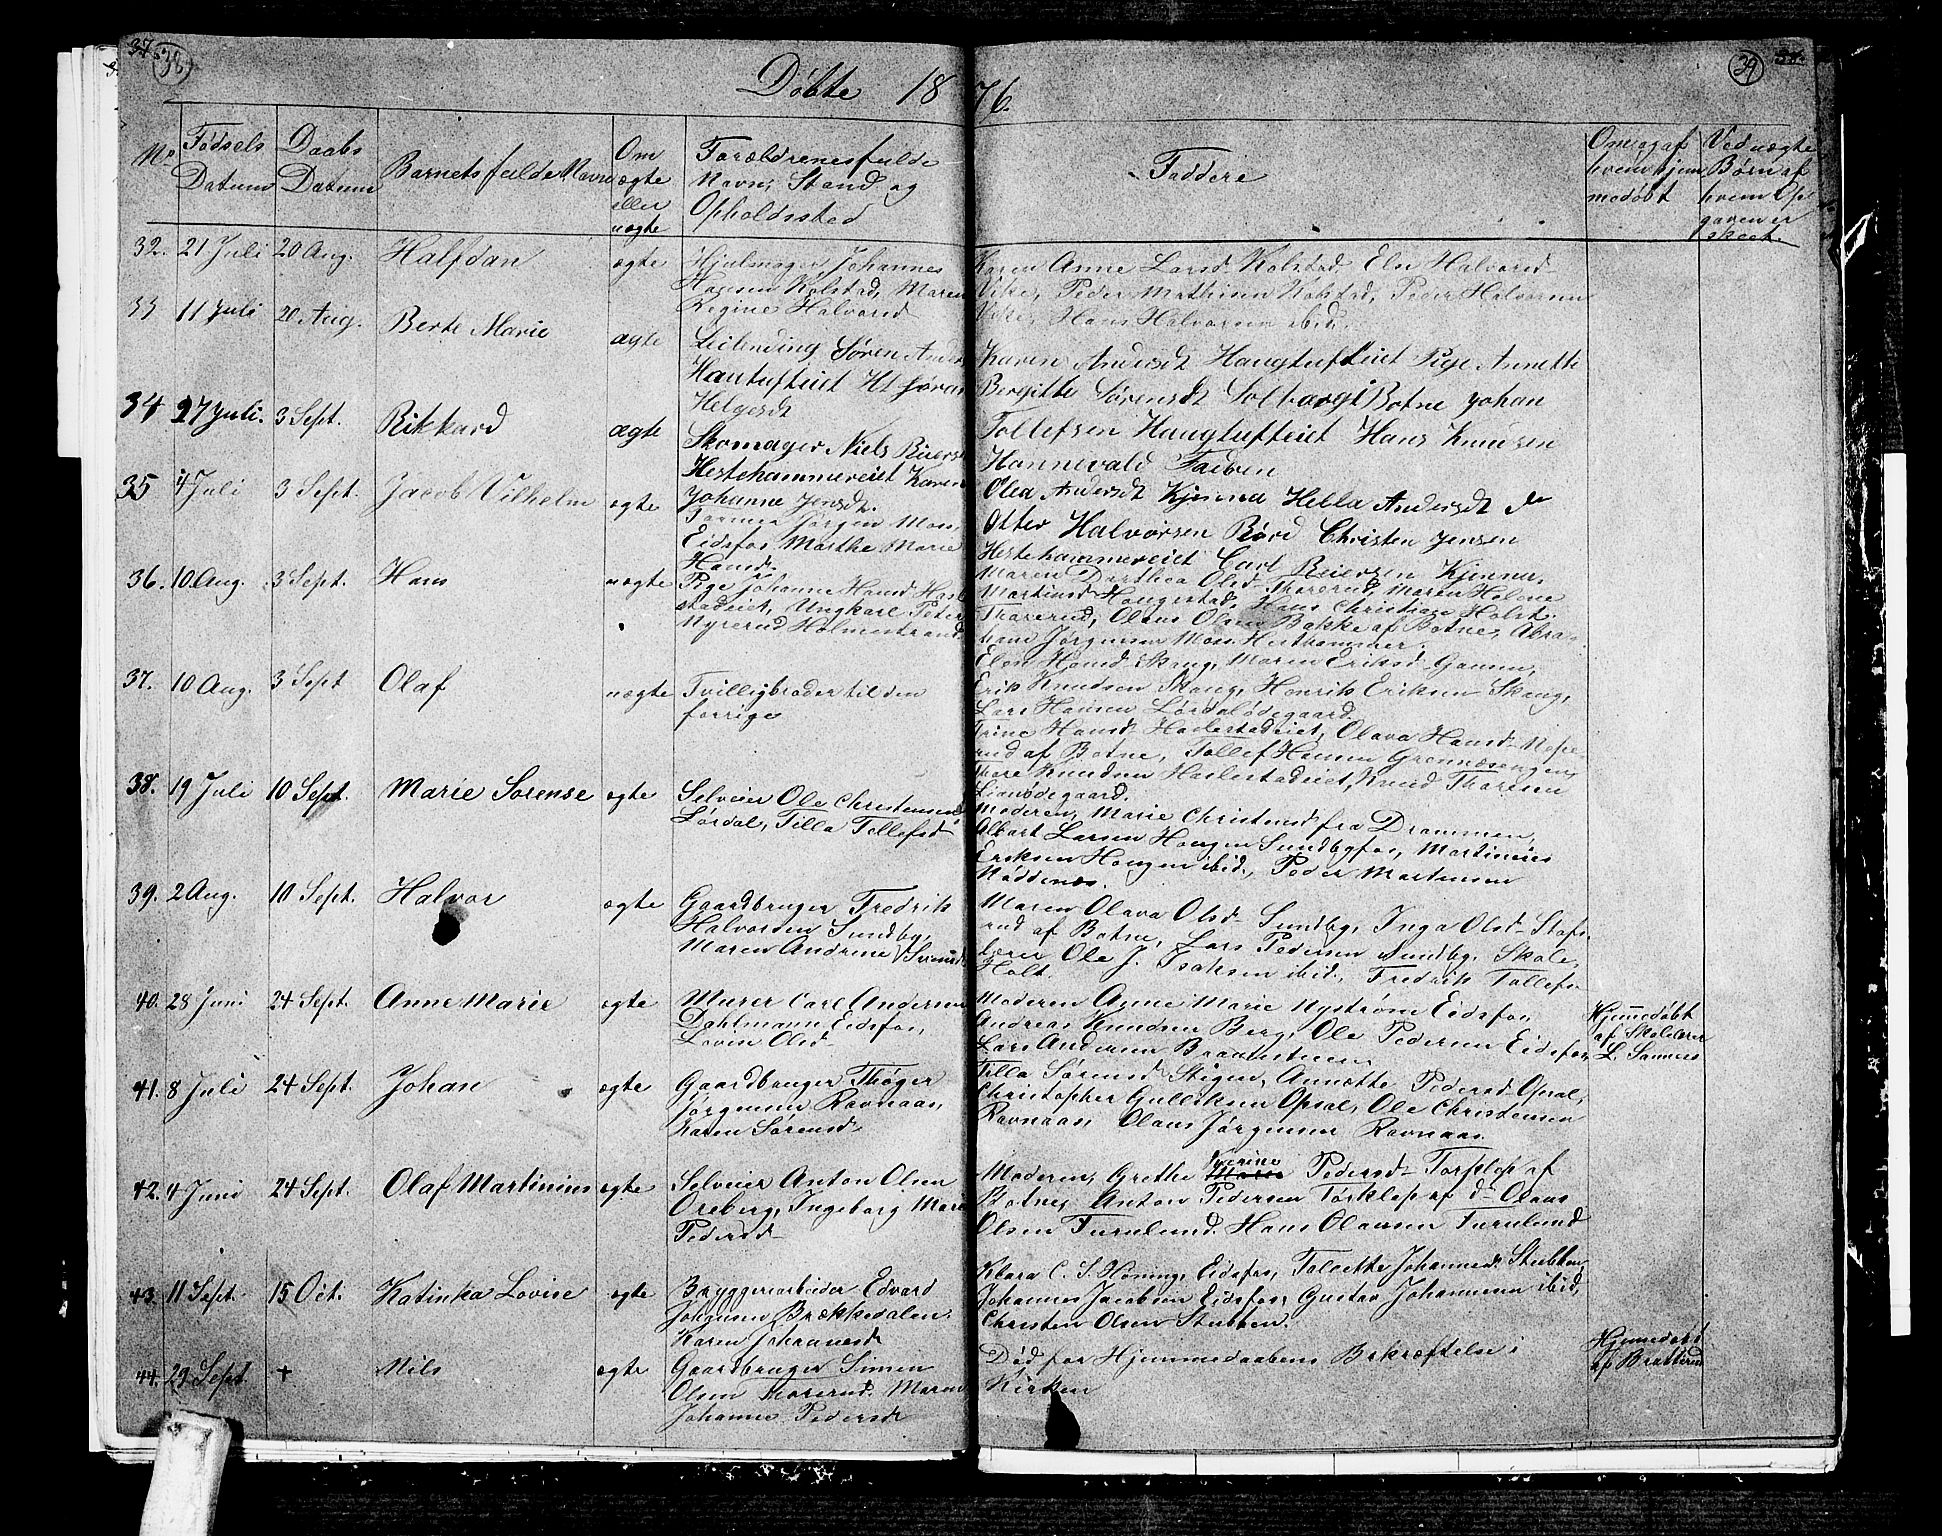 37. 38
Døbte 18
No Fødsels Datum Daabs Datum Barnets fulde Navn Om ægte eller uægte Forældrenes fulde Navn, Stand og Opholdssted
32. 21 Juli 20 Aug. Halfdan ægte Hjulmager Johannes
Hansen Kolstad, Maren
Regine Halvorsd
33 11 Juli 20 Aug. Berte Marie ægte Leilending Søren Anders
Hautufteiet
Helgesdt
34 27 Juli. 3 Sept. Rikkard ægte Skomager Niels Reiers
Hestehammereiet Karen
Johanne Jensdt.
35 4 Juli 3 Sept. Jacob Vilhelm ægte Former Jørgen Moe,
Eidsfos, Marthe Marie
Hansd.
36. 10 Aug. 3 Sept. Hans uægte Pige Johanne Hansd. Hasle
stadeiet, Ungkarl Peder
Nyrerud Holmestrand
37. 10 Aug. 3 Sept Olaf uægte Tvilligbroder til den
forrige
38. 19 Juli 10 Sept. Marie Sorense ægte Selveier Ole Christensen
Lørdal, Tilla Tollefsd
39. 2 Aug. 10 Sept. Halvor ægte Gaardbruger Fredrik
Halvorsen Sundby,
Maren Andrine Svensd
40. 28 Juni 24 Sept. Anne Marie ægte Murer Carl Andersen
Dahlmann Eidsfos,
Lovise Olsd
41. 8 Juli 24 Sept. Johan ægte Gaardbruger Thøger
Jørgensen Ravnaas,
Karen Sørensd
42. 4 Juni 24 Sept. Olaf Martinius ægte Selveier Anton Olsen
Oreberg, Ingeborg Marie
Pedersd
43. 11 Sept. 15 Oct. Katinka Lovise ægte Bryggeriarbeider Edvard
Johansen Brækkedalen
Karen Johannesd
44. 29 Sept + Nils ægte Gaardbruger Simen
Olsen Thorerud. Maren
Johanne Pedersdt
39
76.
Faddere Om og af hvem hjemmedøbt Ved uægte Børn af hvem Opgaven er skeet.
Karen Anne Larsd. Kolstad, Eln Halvorsd
Vike, Peder Mathisen Kolstad, Peder Halvorsen
Vike, Hans Halvorsen ibid.
Karen Andersdt Haugtufteiet Pige Annette
Bergitte Sørensdt Solbergi Botne Johan
Tollefsen Haugtufteiet Hans Knudsen
Hannevald Faderen
Olea Andersdt Kjenna Hella Andersdt do
Otter Halvorsen Røed Christen Jensen
Hestehammereiet Carl Reiersen Kjenna,
Maren Dorthea Olsd. Thorerud, Maren Helene
Martinsd Haugestad, Hans Christian Holst
Thorerud, Olaus Olsen Bakke af Botne, Abra-
ham Jørgensen Moe, Hesthammer,
Elen Hansd. Skaug, Maren Eriksd
Erik Knudsen Skaug, Henrik Eriksen Skaug,
Lars Hansen Lørdalødegaard
Trine Hansd Haslestadeiet, Olava Hansd
rud af Botne, Tollef Hansen Grønnesengen,
Thore Knudsen Haslestadeiet, Knud Thoresen
Moderen, Marie Christensd fra Drammen,
Albert Larsen Haugen Sundbyfos, Martinius
Eriksen Haugen ibid., Peder Martinsen
Nøddenes.
Maren Olava Olsd. Sundby, Inga Olsd Stafs-
rud af Botne, Lars Pedersen Sundby, Skole-
lærer Ole J. Isaksen ibid., Fredrik Tollefsen
Holt.
Moderen Anne Marie Nystrøm Eidsfos, Hjemmedøbt
Andreas Knudsen Berg, Ole Pedersen Eidsfos, af Skolelærer
Lars Andersen Braatesteen L. Sannes
Tilla Sørensd Stigen, Annette Pedersd Opsal,
Christopher Gulliksen Opsal, Ole Christensen
Ravnaas, Olaus Jørgensen Ravnaas.
Moderen, Grethe Pedersd Torkløp af
Botne, Anton Pedersen Torkløp af d Olaus
Olsen Furulund. Hans Olausen Furulund
Klara C. S. Høning, Eidsfos, Tolette Johannesd Stubben
Johannes Jacobsen Eidsfos, Gustav Johannesen ibid,
Christen Olsen Stubben.
Død før Hjemmedaabens Bekræftelse i Hjemmedøbt
Kirken af Bratterud